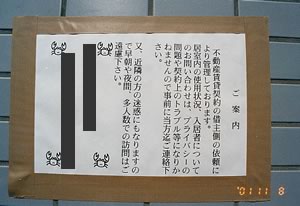 ご案内
不動産賃貸契約の借主側の依頼に
より管理しております。
居室内の使用状況、入居者について
のお問い合わせは、プライバシーの
問題や契約上のトラブル等になりか
ねませんので事前に当方迄ご連絡下
さい。
又、近隣の方の迷惑にもなりますの
で早朝や夜間、多人数での訪問はご
遠慮下さい。
'01 11 8